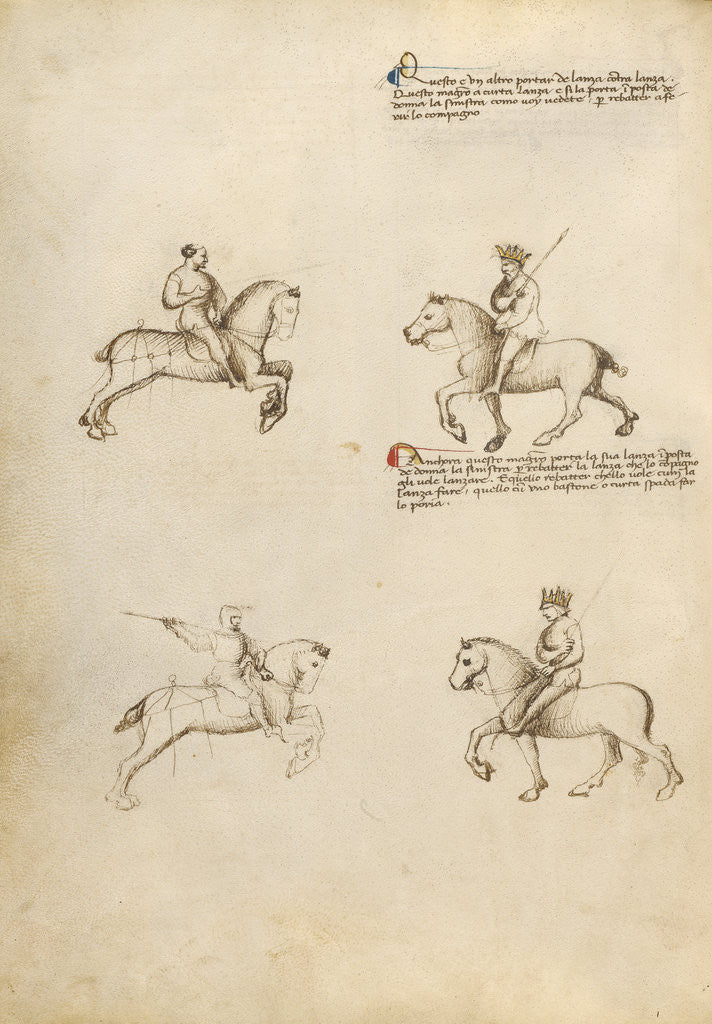 Questo e un altro portar de lanza cōtra lanza.
Questo magro a curta lanza e si la porta ī posta de
donna la sinistra como voy vedete, p rebatter a fe
rir lo compagno
Anchora questo magro porta la sua lanza ī posta
de donna la sinistra p rebatter la lanza che lo cōpagno
gli vole lanzare. E quello rebatter chello vole cum la
lanza fare, quello cū uno bastone o curta spada far
lo poria.